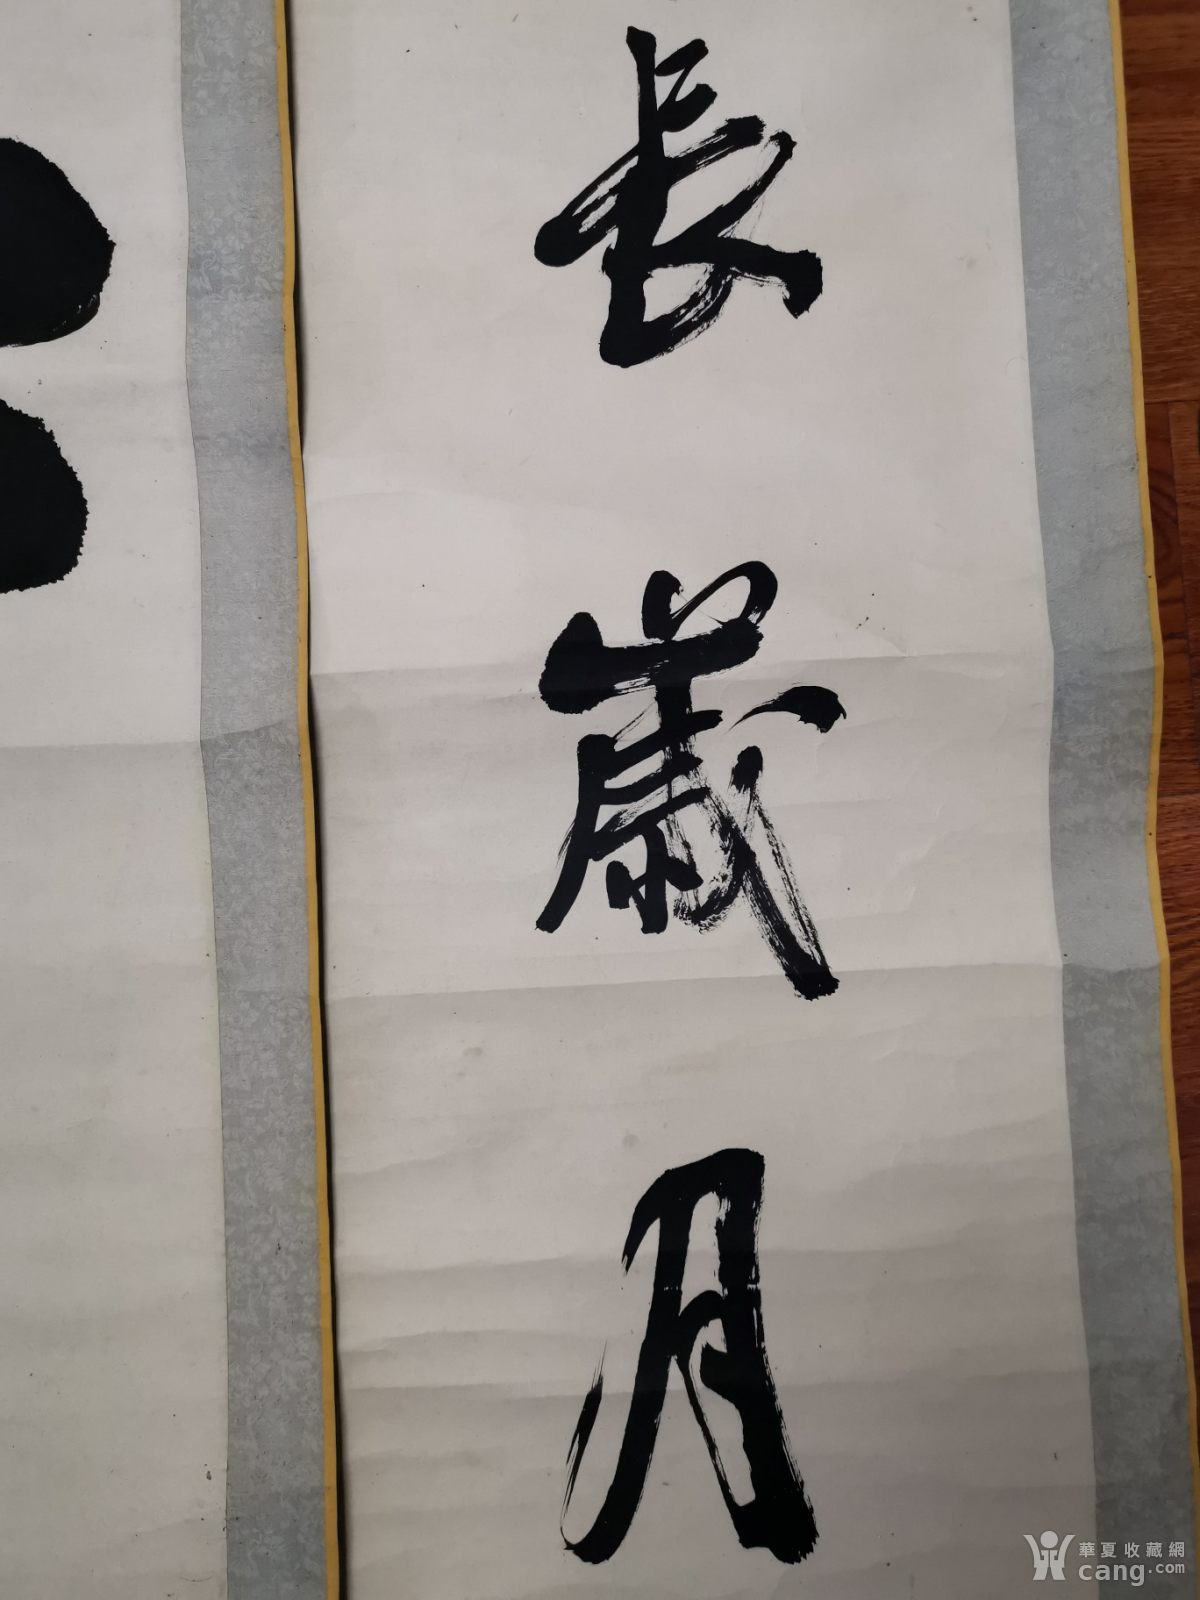 長歲月
華夏收藏網
cang.com